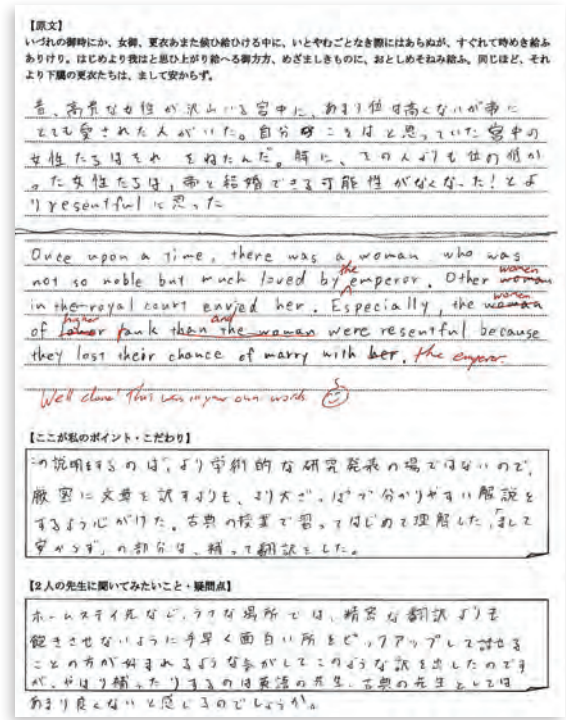 【原文】
いづれの御時にか、女御、更衣あまた候ひ給ひける中に、いとやむごとなき際にはあらぬが、すぐれて時めき給ふ
ありけり。はじめより我はと思ひ上がり給へる御方方、めざましきものに、おとしめそねみ給ふ。同じほど、それ
より下臈の更衣たちは、まして安からず。
昔、高貴な女性が沢山いる宮中に、あまり位は高くないが帝に
とても愛された人がいた。自分こそはと思っていた宮中の
女性たちはそれをねたんだ。特に、その人よりも位の低か
った女性たちは、帝と結婚できる可能性がなくなった!とよ
りresentfulに思った
Once upon a time, there was a woman who was
not so noble but much loved by the emperor. Other woman women
in the royal court envied her. Especially, the woman women
of lower higher rank than the woman and were resentful because
they lost their chance of marry with her. the emperor.
Well done! This was in your own words
【ここが私のポイント・こだわり】
この説明をするのは、より学術的な研究発表の場ではないので、
厳密に文章を訳すよりも、より大ざっぱで分かりやすい解説を
するよう心がけた。古典の授業で習ってはじめて理解した、「まして
安からず」の部分は、補って翻訳をした。
【2人の先生に聞いてみたいこと・疑問点】
ホームステイ先など、ラフな場所では、精密な翻訳よりも
飽きさせないように手早く面白い所をピックアップして話せる
ことの方が好まれるような気がしてこのような訳を出したのです
が、やはり補ったりするのは英語の先生、古典の先生としては
あまり良くないと感じるのでしょうか。